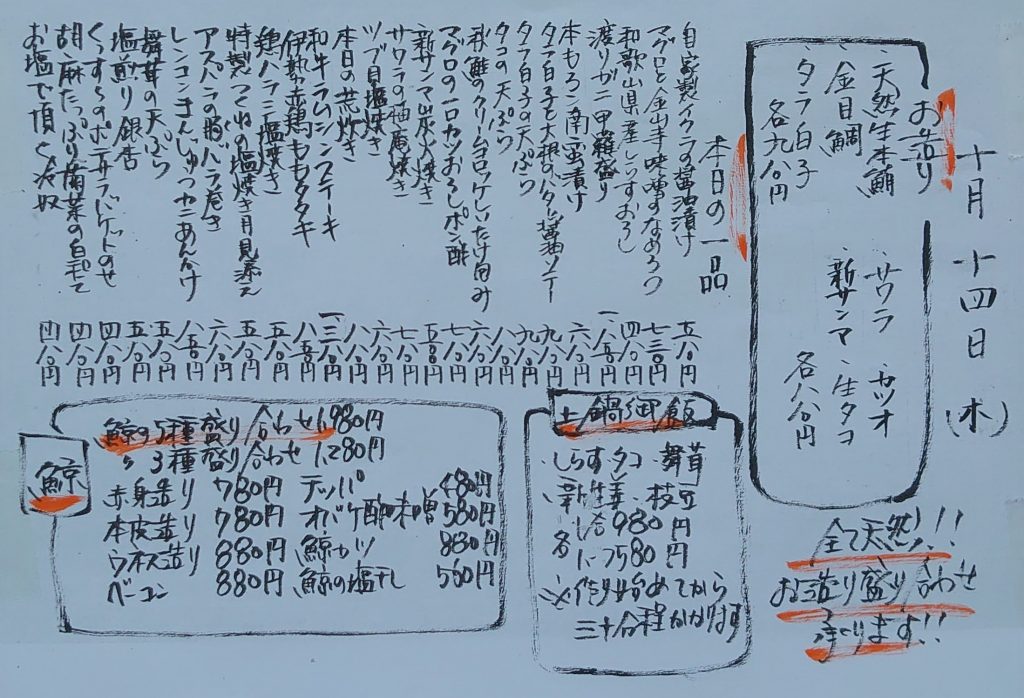 十月十四日(木)
お造り
・天然生本鮪
・金目鯛
・タラ白子
各九八〇円
・サワラ ・カツオ
・新サンマ ・生タコ
各八八〇円
全て天然!!
お造り盛り合わせ
承ります!!
本日の一品
自家製イクラの醤油漬け 五八〇円
マグロと金山寺味噌のなめろう 七三〇円
和歌山県産しらすおろし 四八〇円
渡りガニ甲羅盛り 一、八五〇円
本もろこ南蛮漬け 六八〇円
タラ白子と大根のバター醤油ソテー 九八〇円
タラ白子の天ぷら 九八〇円
タコの天ぷら 八八〇円
秋鮭のクリームコロッケしいたけ包み 六八〇円
マグロの一口カツおろしポン酢 七八〇円
新サンマ炭火焼き 五八〇円
サワラの柚庵焼き 七八〇円
ツブ貝塩焼き 六八〇円
本日の荒炊き 八八〇円
和牛ラムシンステーキ 一、三八〇円
伊勢赤鶏ももタタキ 八五〇円
鶏ハラミ塩焼き 五八〇円
特製つくねの塩焼き月見添え 五八〇円
アスパラの豚バラ巻き 六八〇円
レンコンまんじゅうカニあんかけ 八五〇円
舞茸の天ぷら 五八〇円
塩煎り銀杏 五八〇円
ポテサラバゲットのせ 四八〇円
胡麻たっぷり菊菜の白和え 四八〇円
お塩で頂く冷奴 四八〇円
土鍋御飯
・しらす・タコ・舞茸
・新生姜・枝豆
各 一合980円
に つ580円
※作り始めてから
三十分程かかります
鯨
鯨の5種盛り合わせ1,980円
〃 3種盛り合わせ 1,280円
赤身造り 780円 テッパ 480円
本皮造り 780円 オバケ酢味噌 580円
ウネス造り 880円 鯨カツ 880円
ベーコン 880円 鯨の塩干し 560円